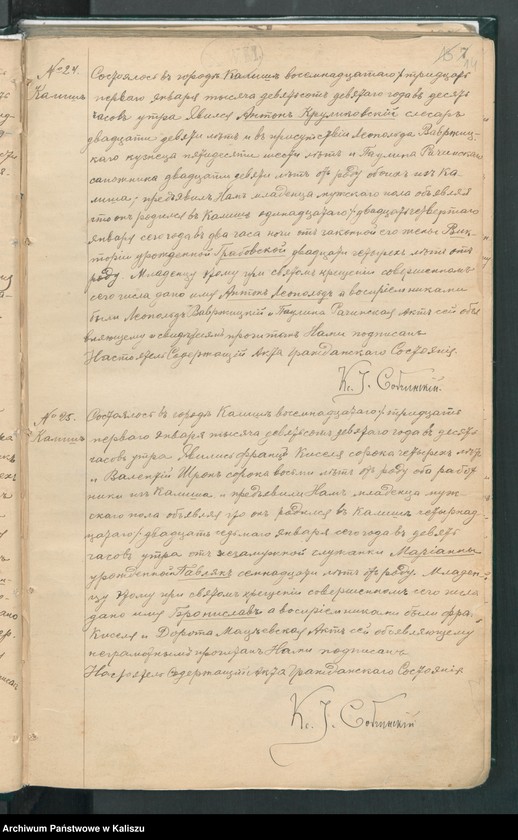 7
14
№ 24.
Калишъ
Состоялось въ городѣ Калишѣ восемнадцатаго / тридцать
перваго Января тысяча девятьсотъ девятаго года въ десять
часовъ утра. Явился Антонъ Круликовскій слесарь
двадцати девяти лѣтъ и въ присутствіи Леопольда Вавржиц-
каго кузнеца пятидесяти шести лѣтъ и
сапожника двадцати девяти лѣтъ отъ роду обоихъ изъ Ка-
лиша, предъявилъ Намъ младенца мужескаго пола объявляя
что онъ родился въ Калишѣ одиннадцатаго / двадцать четвертаго
Января сего года въ два часа ночи отъ законной его жены Вик-
торіи урожденной Грабовской двадцати четырехъ лѣтъ отъ
роду. Младенцу этому при святомъ крещеніи совершенномъ
сего числа дано имя Антонъ Леопольдъ а воспріемниками
были Леопольдъ Вавржицкій и Паулина Актъ сей объя
вляющему и свидѣтелямъ прочитанъ Нами подписанъ
Настоятель Содержащій Акты Гражданскаго Состоянія.
Кс. І.
№ 25.
Калишъ
Состоялось въ городѣ Калишѣ восемнадцатаго / тридцать
перваго Января тысяча девятьсотъ девятаго года въ десять
часовъ утра. Явились Францъ Киселя сорока четырехъ лѣтъ
и Валентій сорока восеми лѣтъ отъ роду оба работ
ники изъ Калиша и предъявили Намъ младенца муж-
скаго пола объявляя что онъ родился въ Калишѣ четырнад
цатаго / двадцать седьмаго Января сего года въ девять
часовъ утра отъ незамужной служанки Маріанны
урожденной Павлякъ семнадцати лѣтъ отъ роду. Младен-
цу этому при святомъ крещеніи совершенномъ сего числа
дано имя Брониславъ а воспріемниками были Фран.
Киселя и Дорота Мацѣевская Актъ сей объявляющему
неграмотнымъ прочитанъ Нами подписанъ
Настоятель Содержащій Акты Гражданскаго Состоянія
Кс. І.
Archiwum Państwowe w Kaliszu